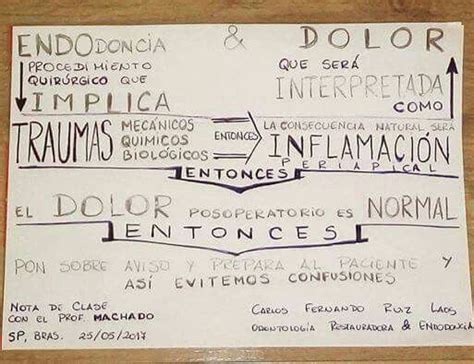 ENDODONCIA & DOLOR
PROCEDIMIENTO
QUIRÚRGICO QUE
IMPLICA
QUE SERÁ
INTERPRETADA
COMO
TRAUMAS
MECÁNICOS
QUIMICOS
BIOLÓGICOS
ENTONCES
LA CONSECUENCIA NATURAL SERÁ
INFLAMACIÓN
PERIAPICAL
ENTONCES
EL DOLOR POSOPERATORIO ES NORMAL
ENTONCES
PON SOBRE AVISO Y PREPARA AL PACIENTE Y
ASÍ EVITEMOS CONFUSIONES
NOTA DE CLASE
CON EL PROF. MACHADO
SP, BRAS. 25/05/2017
CARLOS FERNANDO RUIZ LAOS
ODONTOLOGÍA RESTAURADORA & ENDODONCIA